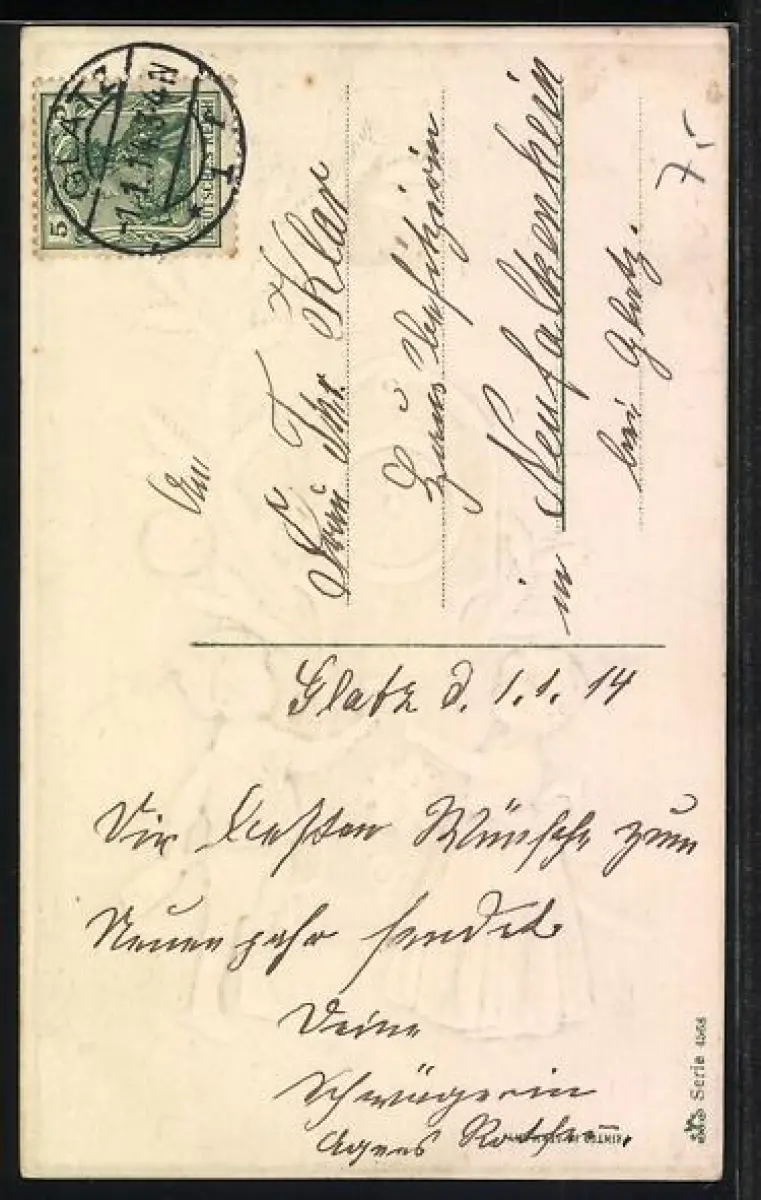 GLATZ
1.1.14.3-4N
* 1 r
DEUTSCHES REICH
5
An
Frau Ther. Klar
Hausbesitzerin
in Neufalkenhein
bei Glatz.
7,-
Glatz d. 1.1.14
Die besten Wünsche zum
Neuen Jahr sendet
Deine
Schwägerin
Agnes
Serie 4568